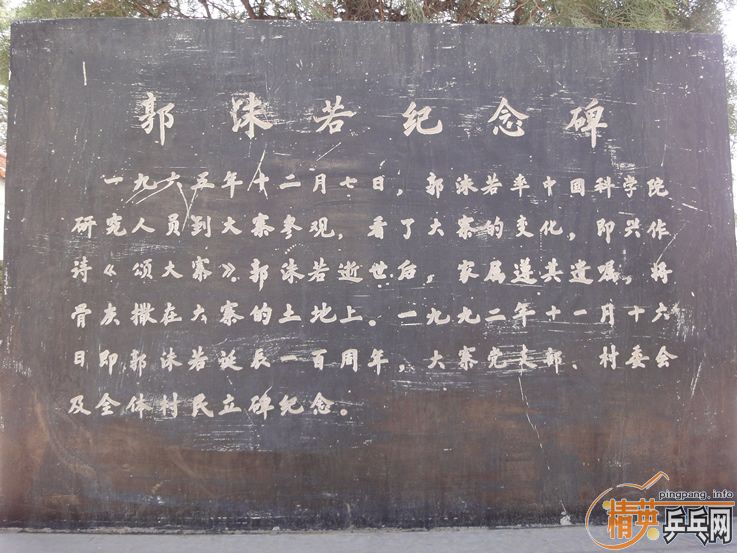 郭沫若纪念碑
一九六五年十二月七日，郭沫若率中国科学院
研究人员到大寨参观，看了大寨的变化，即兴作
诗《颂大寨》。郭沫若逝世后，家属遵其遗嘱，将
骨灰撒在大寨的土地上。一九九二年十一月十六
日即郭沫若诞辰一百周年，大寨党支部、村委会
及全体村民立碑纪念。
pingpang.info
精英乒乓网